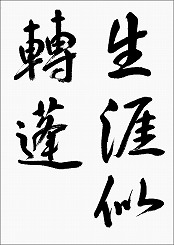 生涯似
轉蓬